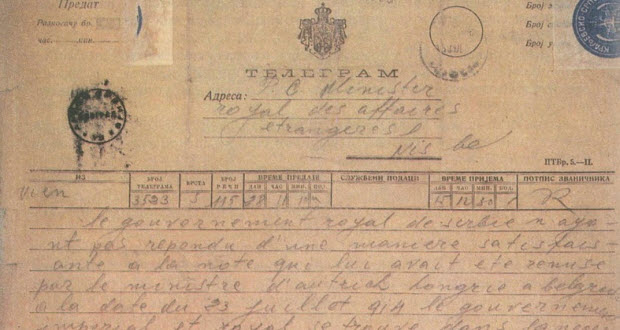 Предат
Разносачу бр.
час. мин.
Број
Број
Број у
ТЕЛЕГРАМ
Адреса: S. E. Minister
royal des affaires
etrangeres
Nis
ПТБр. 5.—II.
ИЗ БРОЈ ТЕЛЕГРАМА ВРСТА БРОЈ РЕЧИ ВРЕМЕ ПРЕДАЈЕ ДАН ЧАС МИН. ПОД. СЛУЖБЕНИ ПОДАЦИ ВРЕМЕ ПРИЈЕМА ДАН ЧАС МИН. ПОД. ПОТПИС ЗВАНИЧНИКА
wien 3523 5 115 28 11 10 15 12 30 R
le gouvernement royal de serbie n aya
nt pas repondu d'une maniere satisfais-
ante a la note qui lui avait ete remise
par le ministre d'autrich hongrie a belgrad
a la date du 23 juillot 914 le gouvernem
imperial et royal se trouve dans